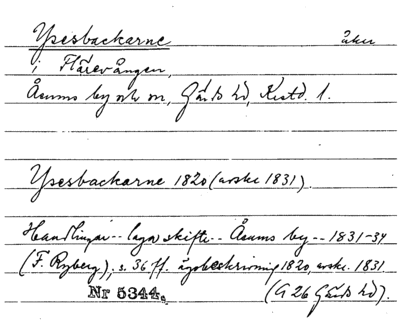 Ypesbackarne åker
i Flärevången,
Åsums by och sn, Gärds hd, Krstd. l.
Ypesbackarne 1820 (avskr 1831)
Handlingar -- laga skifte -- Åsums by -- 1831-34
(F. Ryberg), s. 36 ff. ägobeskrivning 1820, avskr. 1831.
Nr 5344. (G 26 Gärds hd).